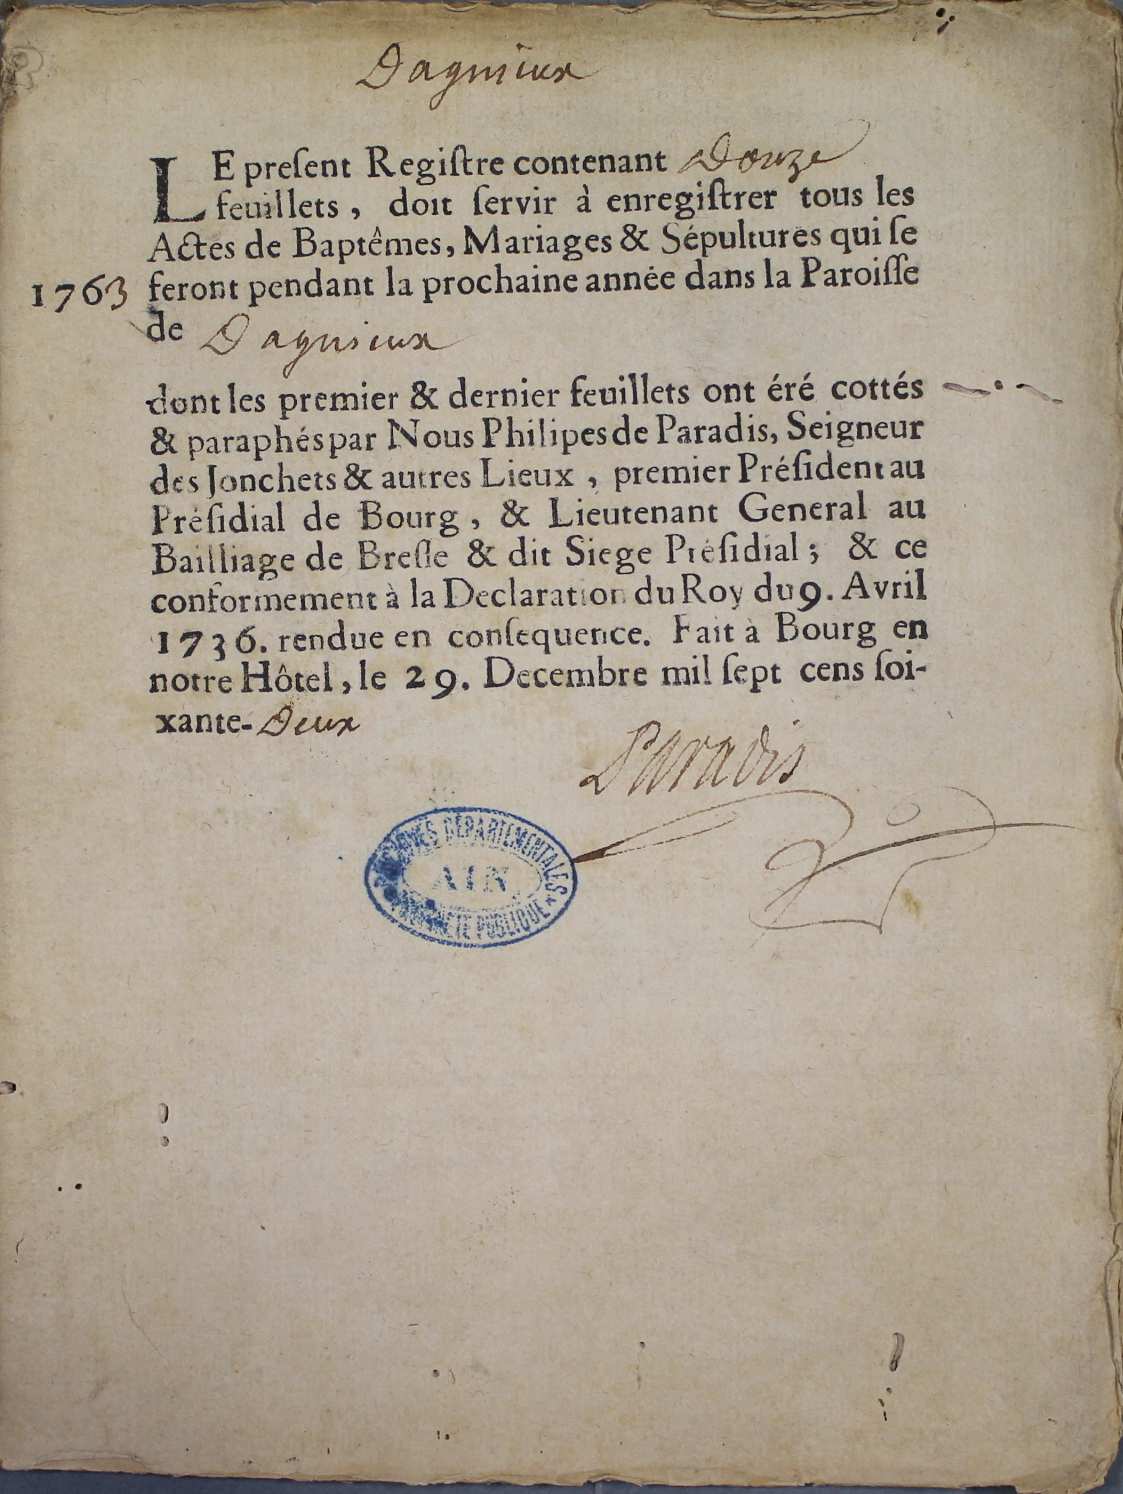 Dagnieux
LE preſent Regiſtre contenant Douze
feuillets, doit ſervir à enregiſtrer tous les
Actes de Baptêmes, Mariages & Sépultures qui ſe
1763 feront pendant la prochaine année dans la Paroiſſe
de Dagnieux
dont les premier & dernier feuillets ont éré cottés
& paraphés par Nous Philipes de Paradis, Seigneur
des Jonchets & autres Lieux, premier Préſident au
Préſidial de Bourg, & Lieutenant General au
Bailliage de Breſſe & dit Siege Préſidial; & ce
conformement à la Declaration du Roy du 9. Avril
1736. rendue en conſequence. Fait à Bourg en
notre Hôtel, le 29. Decembre mil ſept cens ſoi-
xante-Deux
Paradis
ARCHIVES DÉPARTEMENTALES
AIN
PROPRIÉTÉ PUBLIQUE